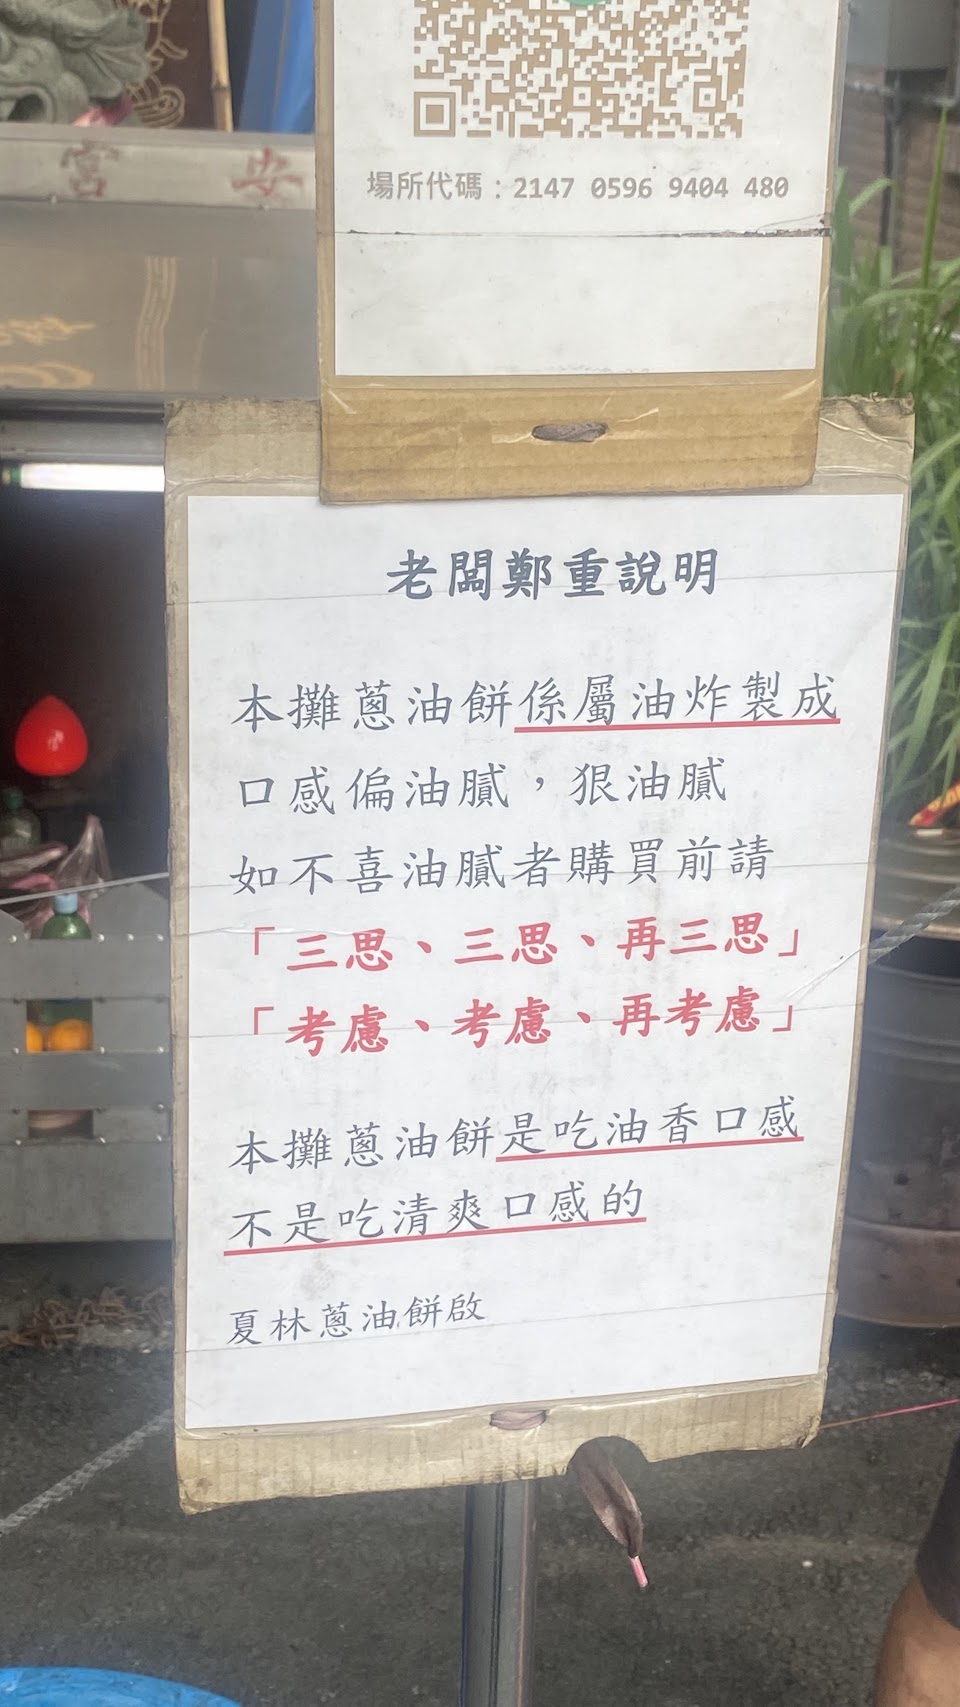 宮 安
場所代碼：2147 0596 9404 480
老闆鄭重說明
本攤蔥油餅係屬油炸製成
口感偏油膩，狠油膩
如不喜油膩者購買前請
「三思、三思、再三思」
「考慮、考慮、再考慮」
本攤蔥油餅是吃油香口感
不是吃清爽口感的
夏林蔥油餅啟